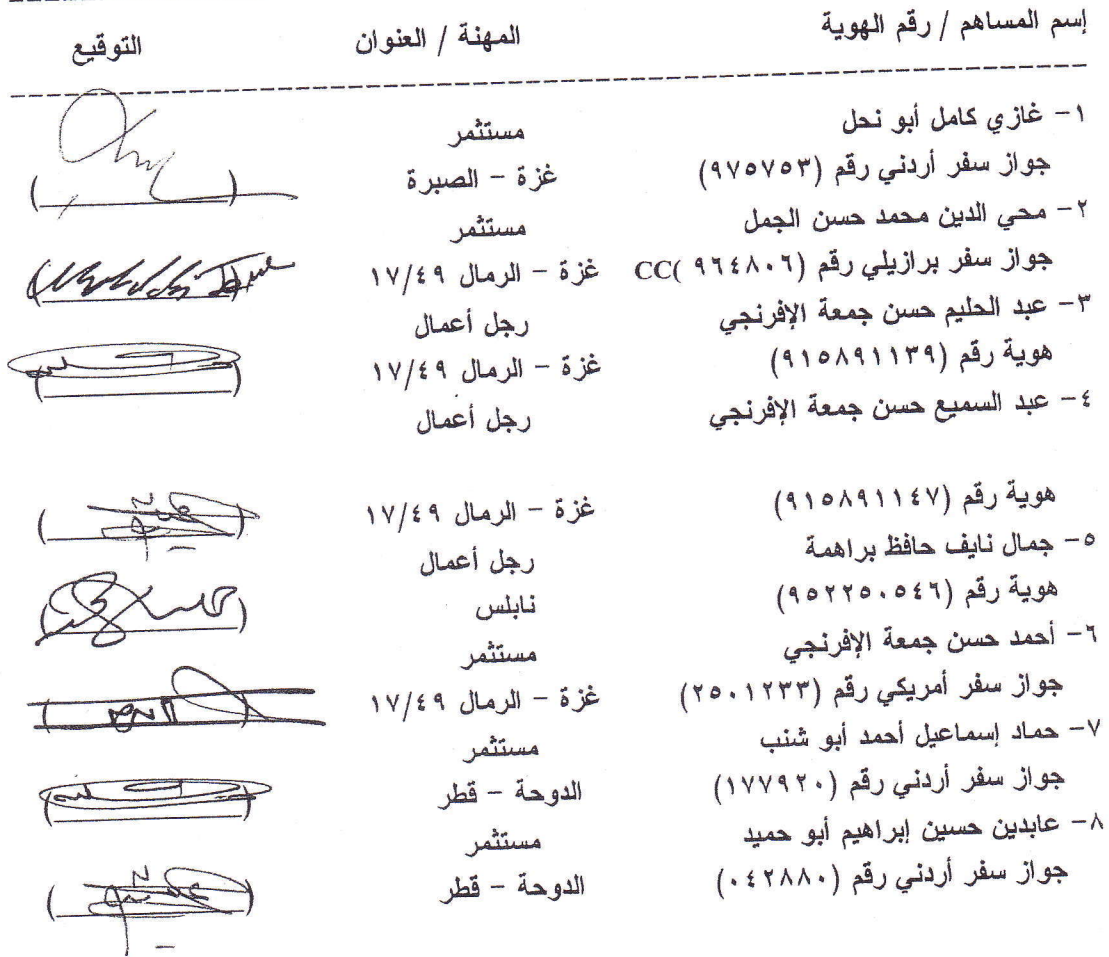 إسم المساهم / رقم الهوية المهنة / العنوان التوقيع
١- غازي كامل أبو نحل مستثمر
جواز سفر أردني رقم (٩٧٥٧٥٣) غزة - الصبرة
٢- محي الدين محمد حسن الجمل مستثمر
جواز سفر برازيلي رقم (٩٦٤٨٠٦ )CC غزة - الرمال ١٧/٤٩
٣- عبد الحليم حسن جمعة الإفرنجي رجل أعمال
هوية رقم (٩١٥٨٩١١٣٩) غزة - الرمال ١٧/٤٩
٤- عبد السميع حسن جمعة الإفرنجي رجل أعمال
هوية رقم (٩١٥٨٩١١٤٧) غزة - الرمال ١٧/٤٩
٥- جمال نايف حافظ براهمة رجل أعمال
هوية رقم (٩٥٢٢٥٠٥٤٦) نابلس
٦- أحمد حسن جمعة الإفرنجي مستثمر
جواز سفر أمريكي رقم (٢٥٠١٢٣٣) غزة - الرمال ١٧/٤٩
٧- حماد إسماعيل أحمد أبو شنب مستثمر
جواز سفر أردني رقم (١٧٧٩٢٠) الدوحة - قطر
٨- عابدين حسين إبراهيم أبو حميد مستثمر
جواز سفر أردني رقم (٠٤٢٨٨٠) الدوحة - قطر